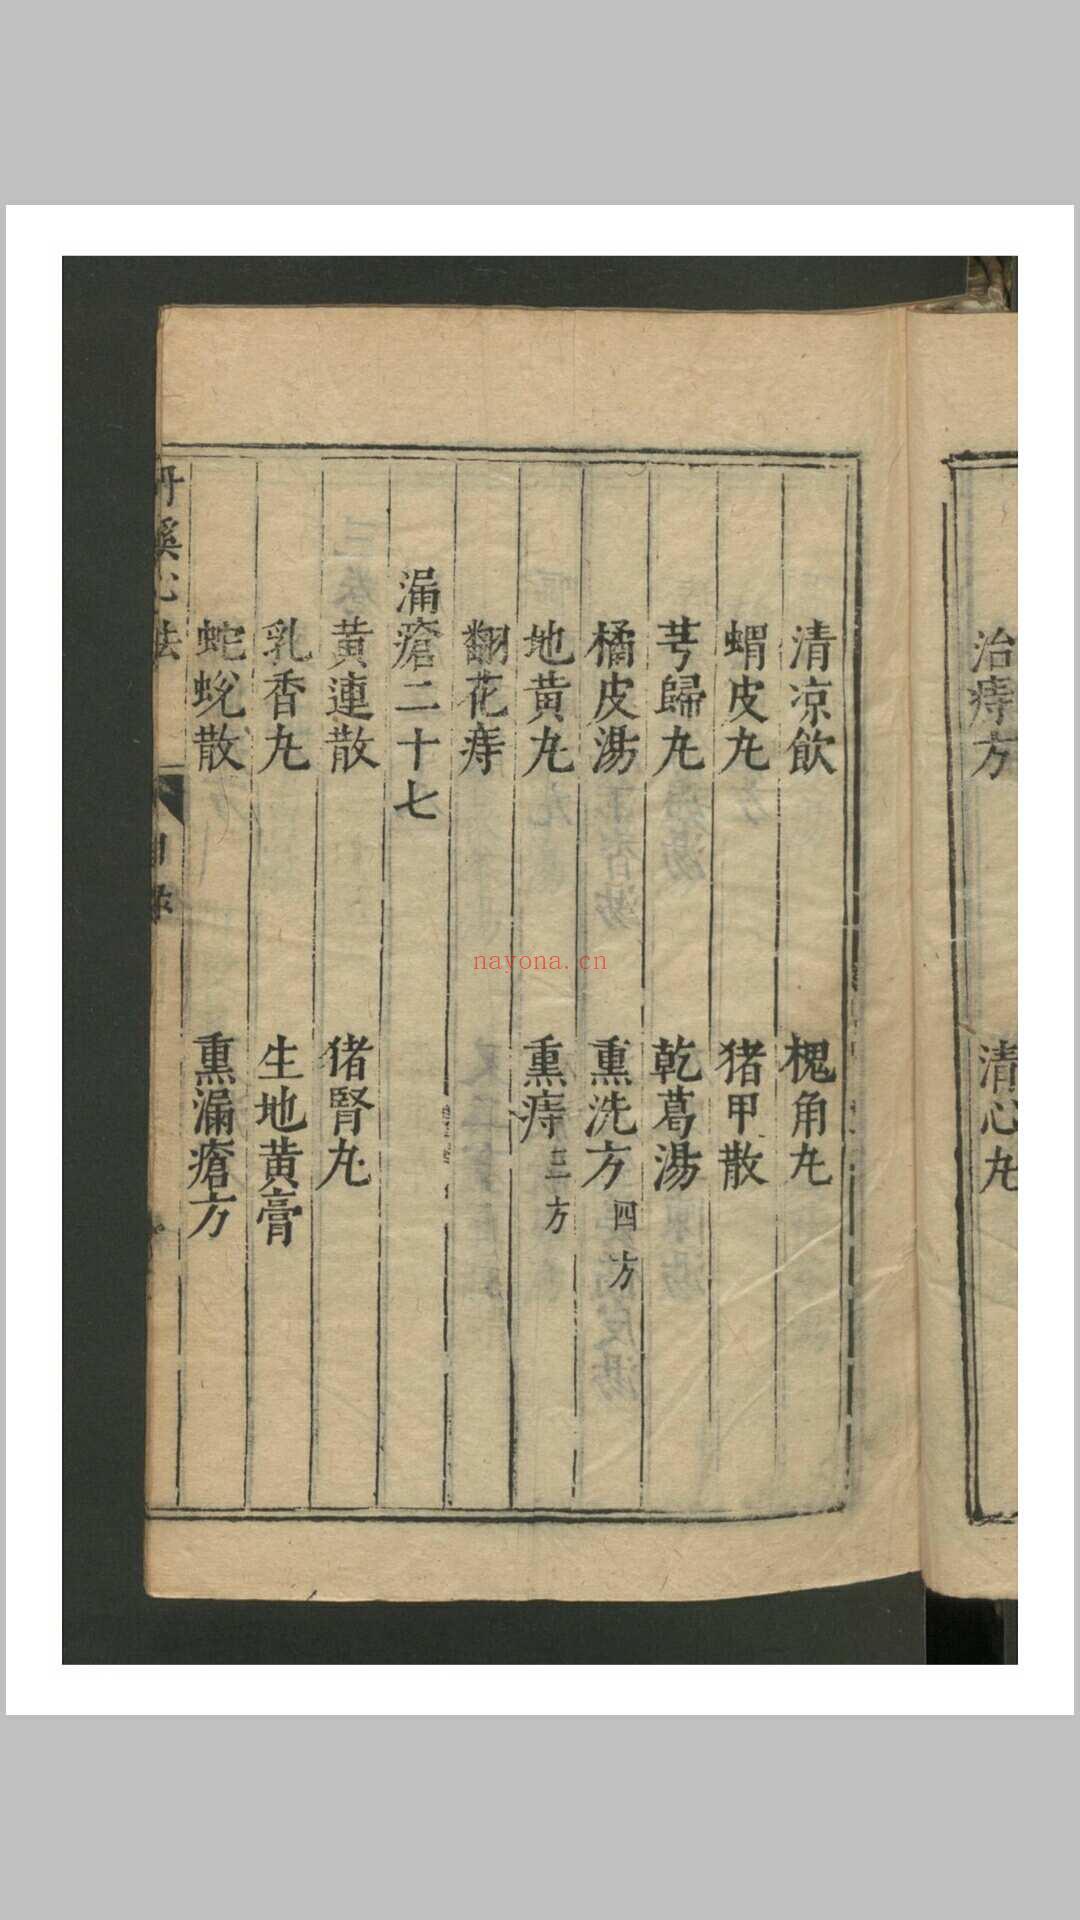 治痔方 清心丸
清凉飲 槐角丸
蝟皮丸 猪甲散
芎歸丸 乾葛湯
橘皮湯 熏洗方四方
地黄丸 熏痔三方
翻花痔
漏瘡二十七
黄連散 猪腎丸
乳香丸 生地黄膏
蛇蛻散 熏漏瘡方
丹溪心法 目录
nayona.cn